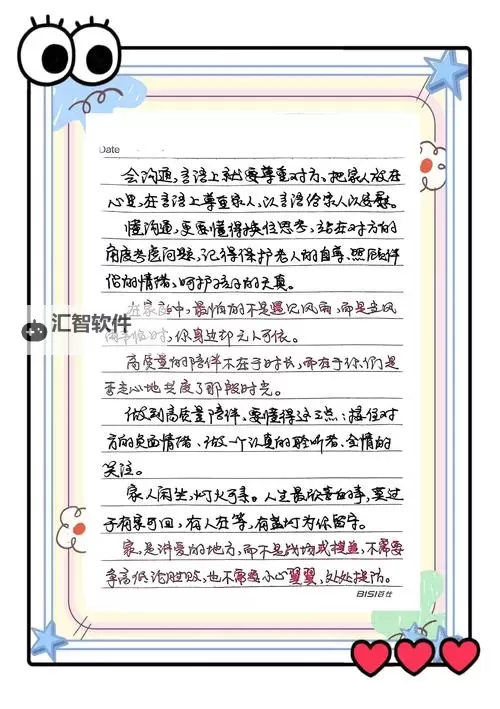 Date
会沟通,言语上就要尊重对方。把家人放在
心里,在言语上尊重家人,以言语给家人以慰。
懂沟通,更要懂得换位思考,站在对方的
角度考虑问题,记得保护老人的自尊、照顾伴
侣的情绪、呵护孩子的天真。
在家庭中,最怕的不是遇见风雨,而是当风
雨来临时,你身边却无人可依。
高质量的陪伴不在于时长,而在于你们是
否走心地共度了那段时光。
做到高质量陪伴,要懂得这三点:接住对
方的负面情绪、做一个认真的聆听者、全情的
关注。
家人闲坐,灯火可亲。人生最欣喜的事,莫过
于有家可回,有人在等,有盏灯为你留守。
家,是讲爱的地方,而不是战场或擂台,不需要
争高低论胜败,也不需要小心翼翼,处处提防。
BISI百仕
汇智软件